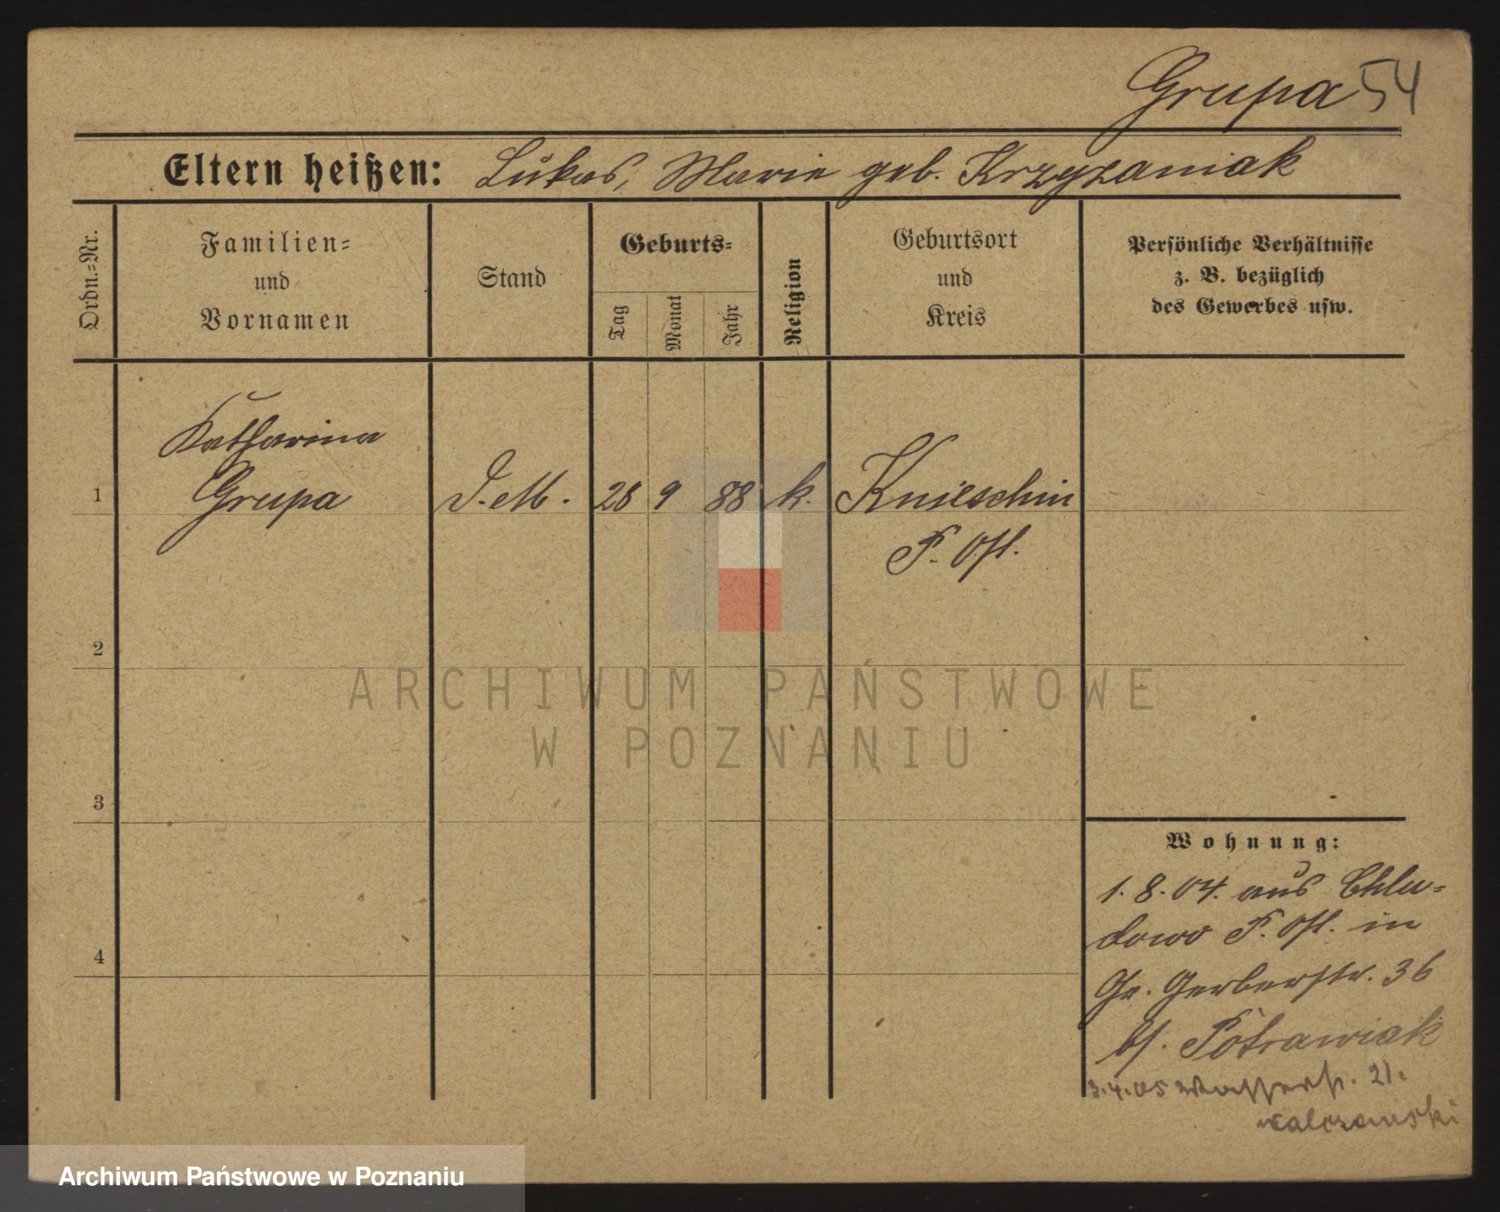 Grupa 54
Eltern heißen: Lukas, Marie geb. Krzyzaniak
Ordn.=Nr.
Familien=
und
Vornamen
Stand
Geburts=
Tag
Monat
Jahr
Religion
Geburtsort
und
Kreis
Persönliche Verhältnisse
z. B. bezüglich
des Gewerbes usw.
Katharina
1 Grupa D.M. 28 9 88 k. Knieschin
P. Ost.
2
ARCHIWUM PAŃSTWOWE
W POZNANIU
3
Wohnung:
1.8.04. aus Chlu=
dowo P. Ost. in
4
Gr. Gerberstr. 36
b/. Potrawiak
3.4.05 Wasserstr. 21.
Archiwum Państwowe w Poznaniu